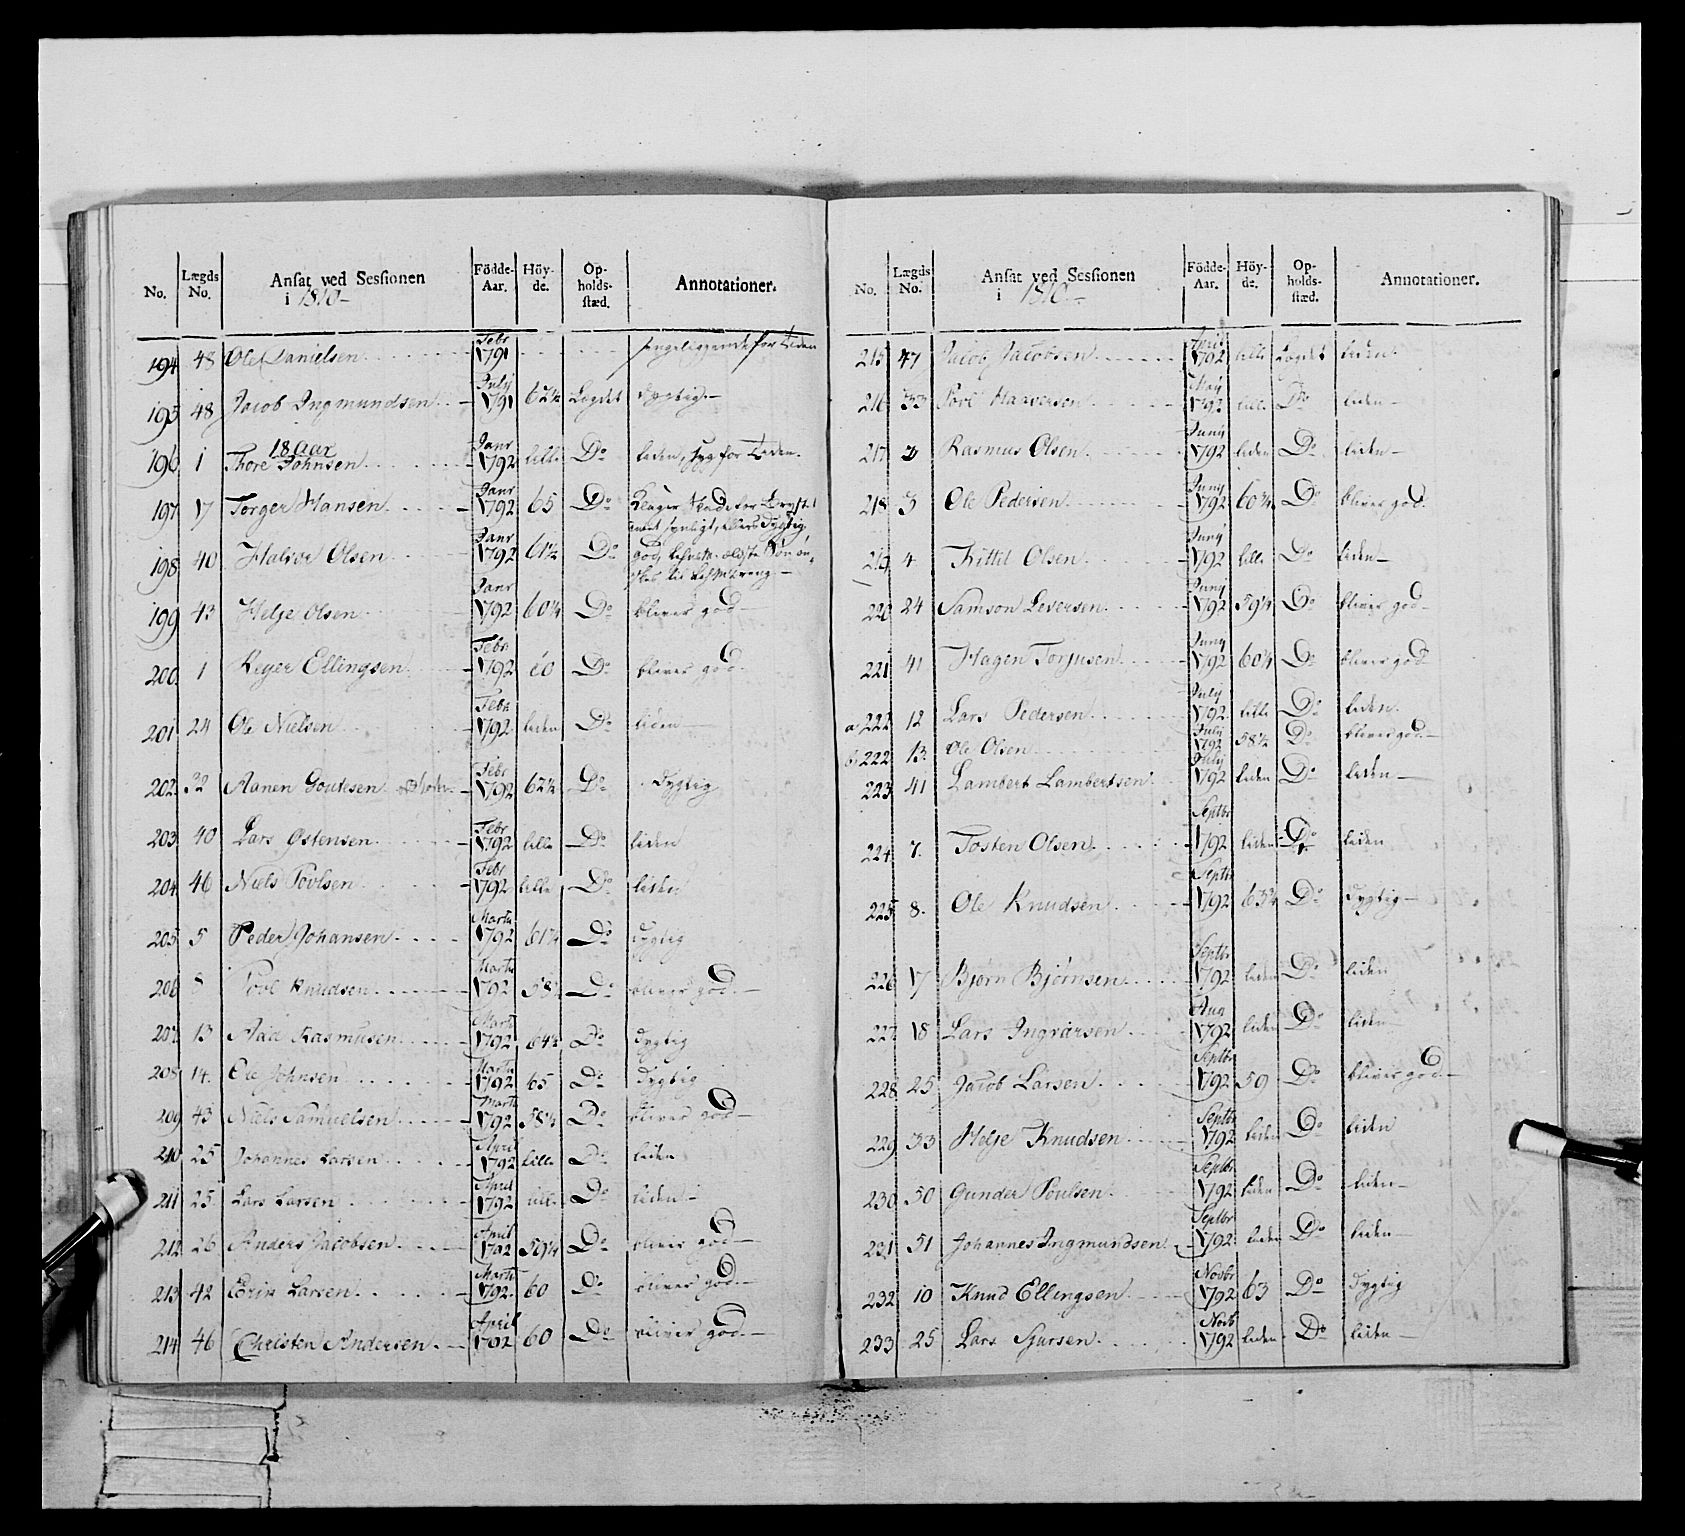 No. Lægds No. Ansat ved Sessionen i 1810 Födde-Aar. Höy-de. Op-holds-stæd. Annotationer.
194 48 Ole Danielsen Febr 1791 sengeliggende for Tiden
195 48 Jacob Ingmundsen July 1791 62½ Lægdet dygtig
18 Aar
196 1 Thore Johnsen Janr 1792 lille Do liden, syg for Tiden.
197 17 Torger Hansen Janr 1792 65 Do
198 40 Halvor Olsen Janr 1792 61½ Do
199 43 Helje Olsen Janr 1792 60¼ Do bliver god
200 1 Reyer Ellingsen Febr 1792 60 Do bliver god
201 24 Ole Nielsen Febr 1792 liden Do liden
202 32 Aanen Goutesen Febr 1792 62½ Do dygtig
203 40 Lars Østensen Febr 1792 lille Do liden
204 46 Niels Povlsen Febr 1792 lille Do liden
205 5 Peder Johansen Marts 1792 61¼ Do dygtig
206 Povl Knudsen Marts 1792 58½ Do bliver god
207 13 Aad Rasmusen Marts 1792 64½ Do dygtig
208 14 Ole Johnsen Marts 1792 65 Do dygtig
209 43 Niels Samuelsen Marts 1792 58½ Do bliver god
210 25 Johannes Larsen April 1792 lille Do liden
211 25 Lars Larsen April 1792 lille Do liden
212 26 Anders Jacobsen April 1792 59¼ Do bliver god
213 42 Erik Larsen Marts 1792 60 Do bliver god
214 46 Christen Andersen April 1792 60 Do bliver god
No. Lægds No. Ansat ved Sessionen i 1810 Födde-Aar. Höy-de. Op-holds-stæd. Annotationer.
215 47 Jacob Jacobsen April 1792 lille Lægdet liden
216 33 Povl Haaversen May 1792 lille Do liden
217 2 Rasmus Olsen Juny 1792 liden Do liden
218 3 Ole Pedersen Juny 1792 60¾ Do bliver god
219 4 Kittil Olsen Juny 1792 lille Do liden
220 24 Samson Leversen Juny 1792 59¼ Do bliver god
221 41 Hagen Torjusen Juny 1792 60¼ Do bliver god
a 222 12 Lars Pedersen July 1792 lille Do liden
b 222 13 Ole Olsen July 1792 58½ Do bliver god
223 41 Lambert Lambertsen July 1792 liden Do liden
224 7 Tosten Olsen Septbr 1792 liden Do liden
225 8 Ole Knudsen Septbr 1792 63¼ Do dygtig
226 17 Bjørn Bjørnsen Septbr 1792 liden Do liden
227 18 Lars Ingvarsen Aug 1792 liden Do liden
228 25 Jacob Larsen Septbr 1792 59 Do bliver god
229 33 Helje Knudsen Septbr 1792 liden Do liden
230 50 Gunder Poulsen Septbr 1792 liden Do liden
231 51 Johannes Ingmundsen Septbr 1792 liden Do liden
232 10 Knud Ellingsen Novbr 1792 63 Do dygtig
233 25 Lars Sjursen Novb 1792 liden Do liden